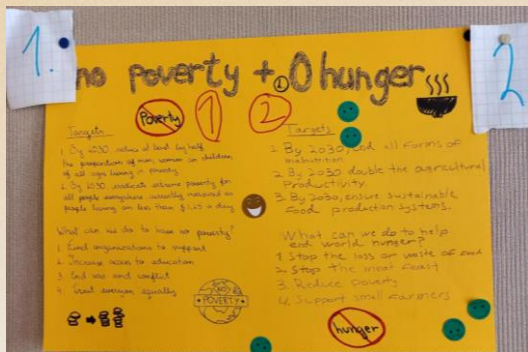 1.
2
no poverty + 0 hunger
Poverty
1
2
Targets
1. By 2030, reduce at least by half
the proportion of men, women or children,
of all ages living in poverty
2. By 2030, eradicate extreme poverty for
all people everywhere, currently measured as
people living on less than $1,25 a day
What can we do to have no poverty?
1. Fund organizations to support
2. Increase access to education
3. End war and conflict
4. Treat everyone equally
POVERTY
Targets
1. By 2030, end all forms of
malnutrition
2. By 2030 double the agricultural
Productivity.
3. By 2030, ensure sustainable
food production systems.
What can we do to help
end world hunger?
1 Stop the loss or waste of food
2. Stop the meat feast
3. Reduce poverty
4. Support small farmers
hunger